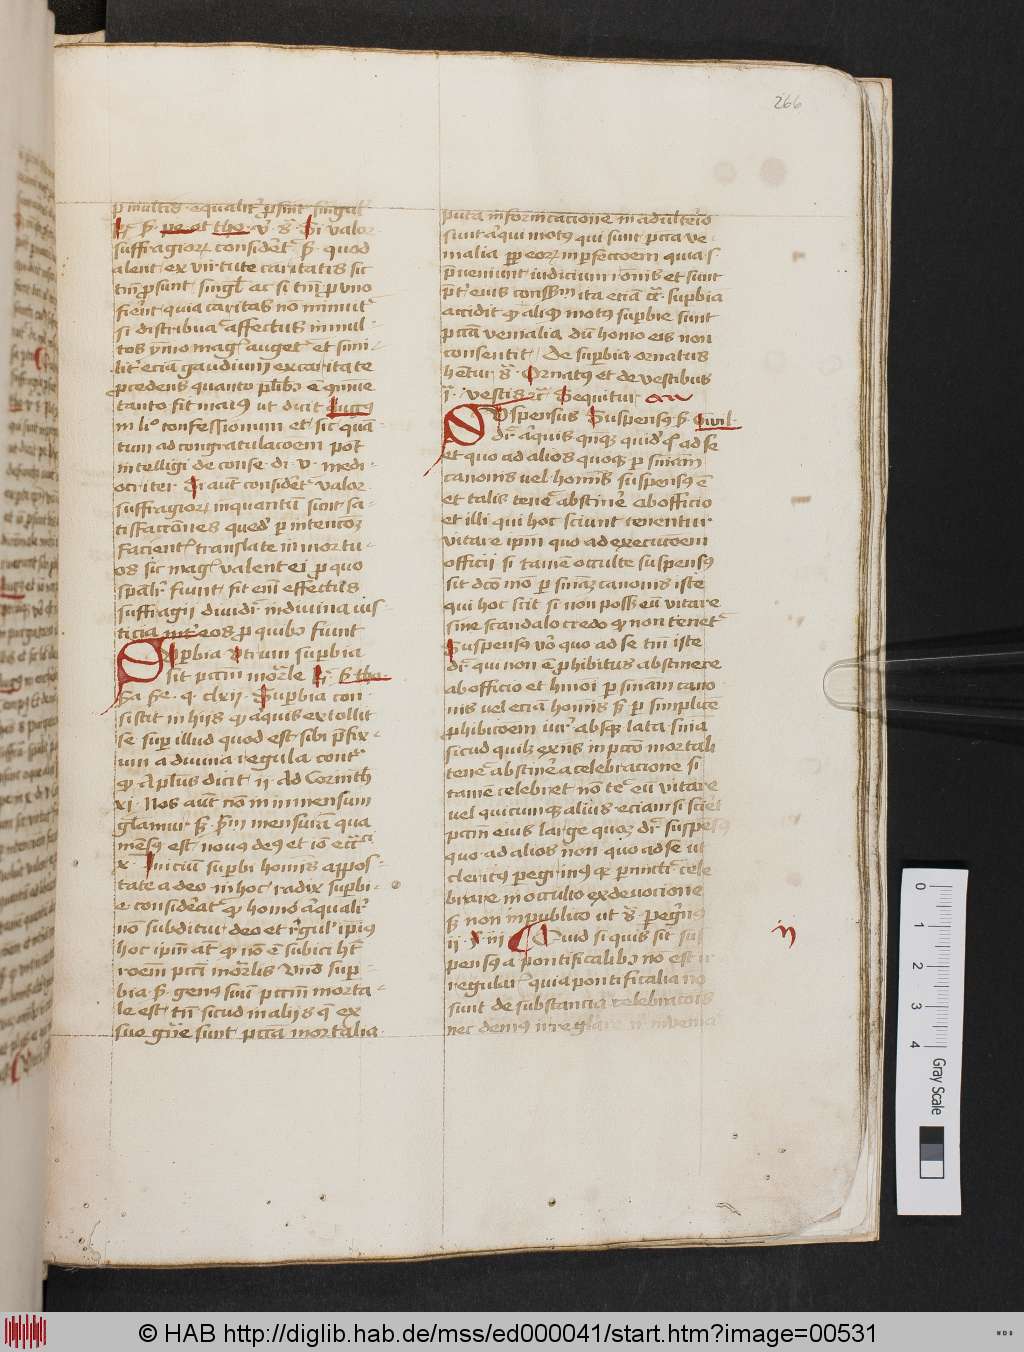 266
p multis equalit' p̄sint singul'
R̄ ẜ pe et tho v s̄ Si valor
suffragiorꝝ consider̄t ẜ quod
alent ex virtute caritatis sic
tm̄ p̄sunt singl̄ ac si tm̄ p vno
fier̄nt quia caritas nō minuit'
si distribuat affectus in mul-
tos ymo mag' auget' et simi-
lit' eciā gaudium ex caritate
p̄cedens quanto plib9 ē
tanto fit maius ut dicit Augꝯ
in li° confessionum et sic quā-
tum ad congratulacoem pot̄
intelligi de conse di v medi-
ocriter Si aut̄ considerēt valor
suffragiorꝝ inquantū sunt sa-
tisfacctōnes p intencōꝫ
facient' translate in mortu-
os sic mag' valent ei p quo
spāl'r fiunt sit enī effectus
suffragii dividi' in divina ius-
ticia int' eos p quibꝯ fiunt
Superbia Utrum superbia
sit pctm mor̄le R̄ ẜ tho
q clxii Superbia con-
sistit in hijs qꝫ aquis extollit
se sup illud quod est sibi p̄fix-
um a divina regula cont'
qꝫ Aplus dicit ii Ad Corinth
xi Nos aut nō in inmensum
gl̄amur ẜ mensurā qua
est novus deꝯ et iō eccī
x Iniciū superbi hominis appos-
tate a deo in hoc radix superbi-
e considerat' qꝫ homo aliqual'r
nō subditur deo et regul' ipius
hoc ipm aūt qꝫ nō ē subici ht
roēm pcti mor̄lis Vnd̄ sup-
bia ẜ genꝯ suū pctm morta-
le est tn̄ sicud in alijs q̄ ex
suo gn̄e sunt pctā mortalia
puta in fornicacione in adulterio
sunt aliqui motꝯ qui sunt pctā ve-
nialia ppt' eorꝝ inperfectōem quia s'
p̄veniunt iudicium rōnis et sunt
pt' eius consensm ita eciā cc̄ superbia
accidit qꝫ aliqi motꝯ superbie sunt
pctā venialia dū homo eis non
consentit De superbia ornatus
hētur s̄ Ornatꝯ et de vestibus
s̄ vestis &c Sequitur
Suspensus Suspensꝯ ẜ Guil
dr̄ aliquis qnqꝫ quid' ad se
et quo ad alios quoqꝫ p sniam
canonis vel hominis suspensꝯ ē
et talis tenet' abstiner̄ ab officio
et illi qui hoc sciunt tenentur
vitare ipm quo ad execucōem
officii si tamē occulte suspensꝯ
sit dco mo p sniāꝫ canonis iste
qui hoc scit si non poss̄ eū vitare
sine scandalo credo qꝫ non tenet'
Suspensꝯ vō quo ad se tm̄ iste
dr̄ qui non ē phibitus abstinere
ab officio et hmoi p sniam cano-
nis vel eciā hominis ẜ p simplicē
phibicōem iur' absqꝫ lata sniā
sicud qꝫlibꝫ exn̄s in pctō mortali
tenet' abstiner̄ a celebracione si
tamē celebret no tēt' eū vitare
vel quicumqꝫ alius eciam si sciēt
pctm eius large quoqꝫ dr̄ suspensꝯ
quo ad alios non quo ad se ut
clericꝯ peregrinꝯ qꝫ p̄mitti' cele-
brare in occulto ex devocione
ẜ non in publico ut s̄ pegrinꝯ
ii § iii Quid si quis sit sus
pensꝯ a pontificalibꝯ nō est ir
regular' quia pontificalia nō
sunt de substancia celebracōis
nec deniqꝫ irreglar̄
ii
0
1
2
3
4
Gray Scale
© HAB http://diglib.hab.de/mss/ed000041/start.htm?image=00531